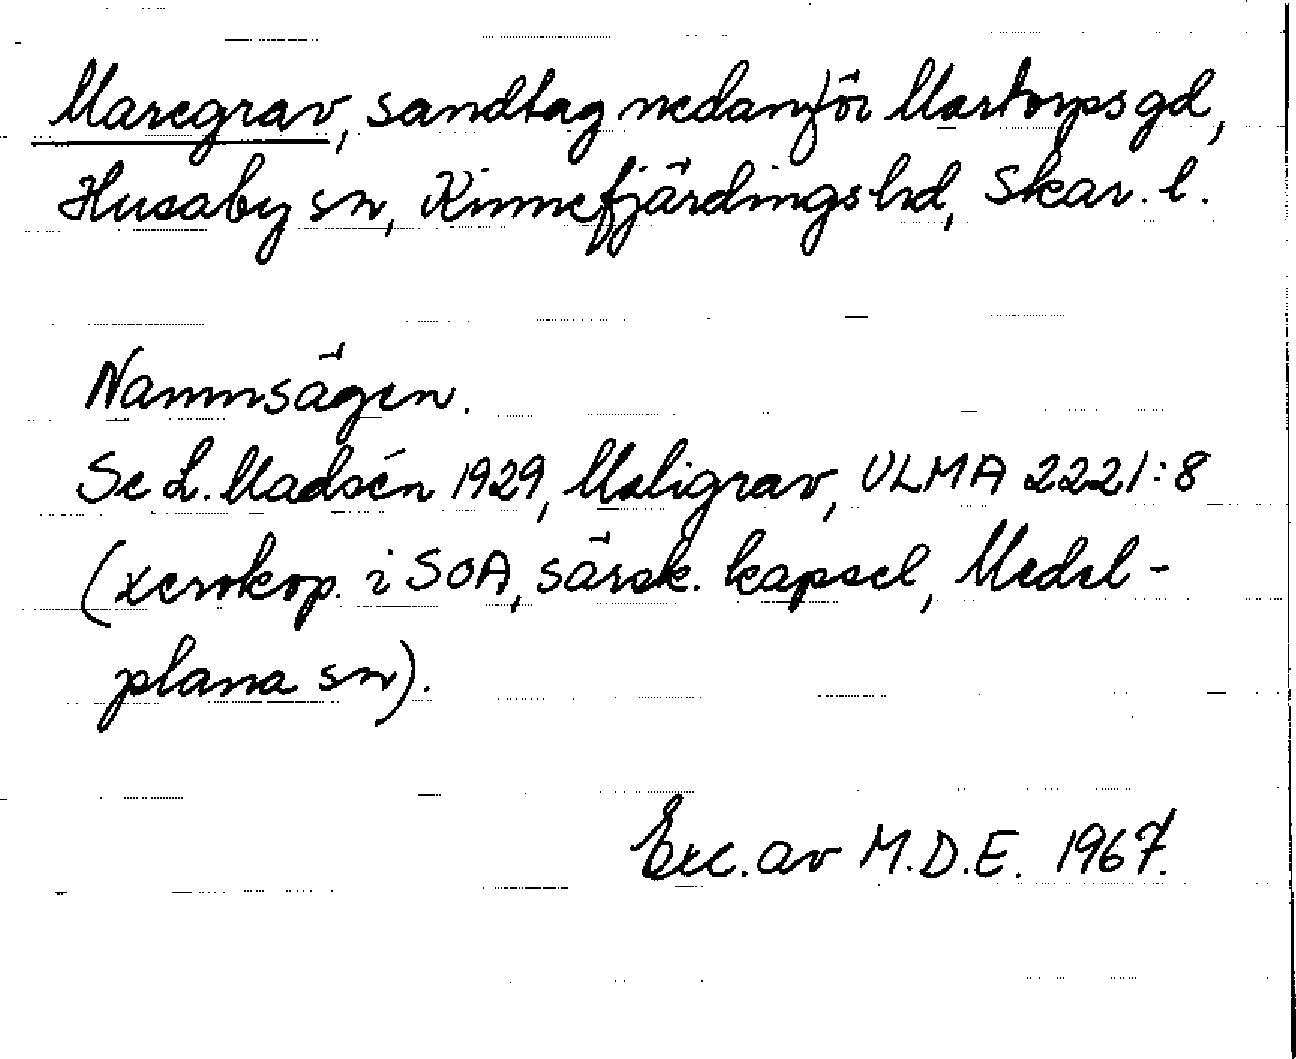 Maregrav, sandtag nedanför Martorps gd,
Husaby sn, Kinnefjärdings hd, Skar. l.
Namnsägen.
Se L. Madsén 1929, Maligrav, ULMA 2221:8
(xerokop. i SOA, särsk. kapsel, Medel-
plana sn).
Exc. av M.D.E. 1967.